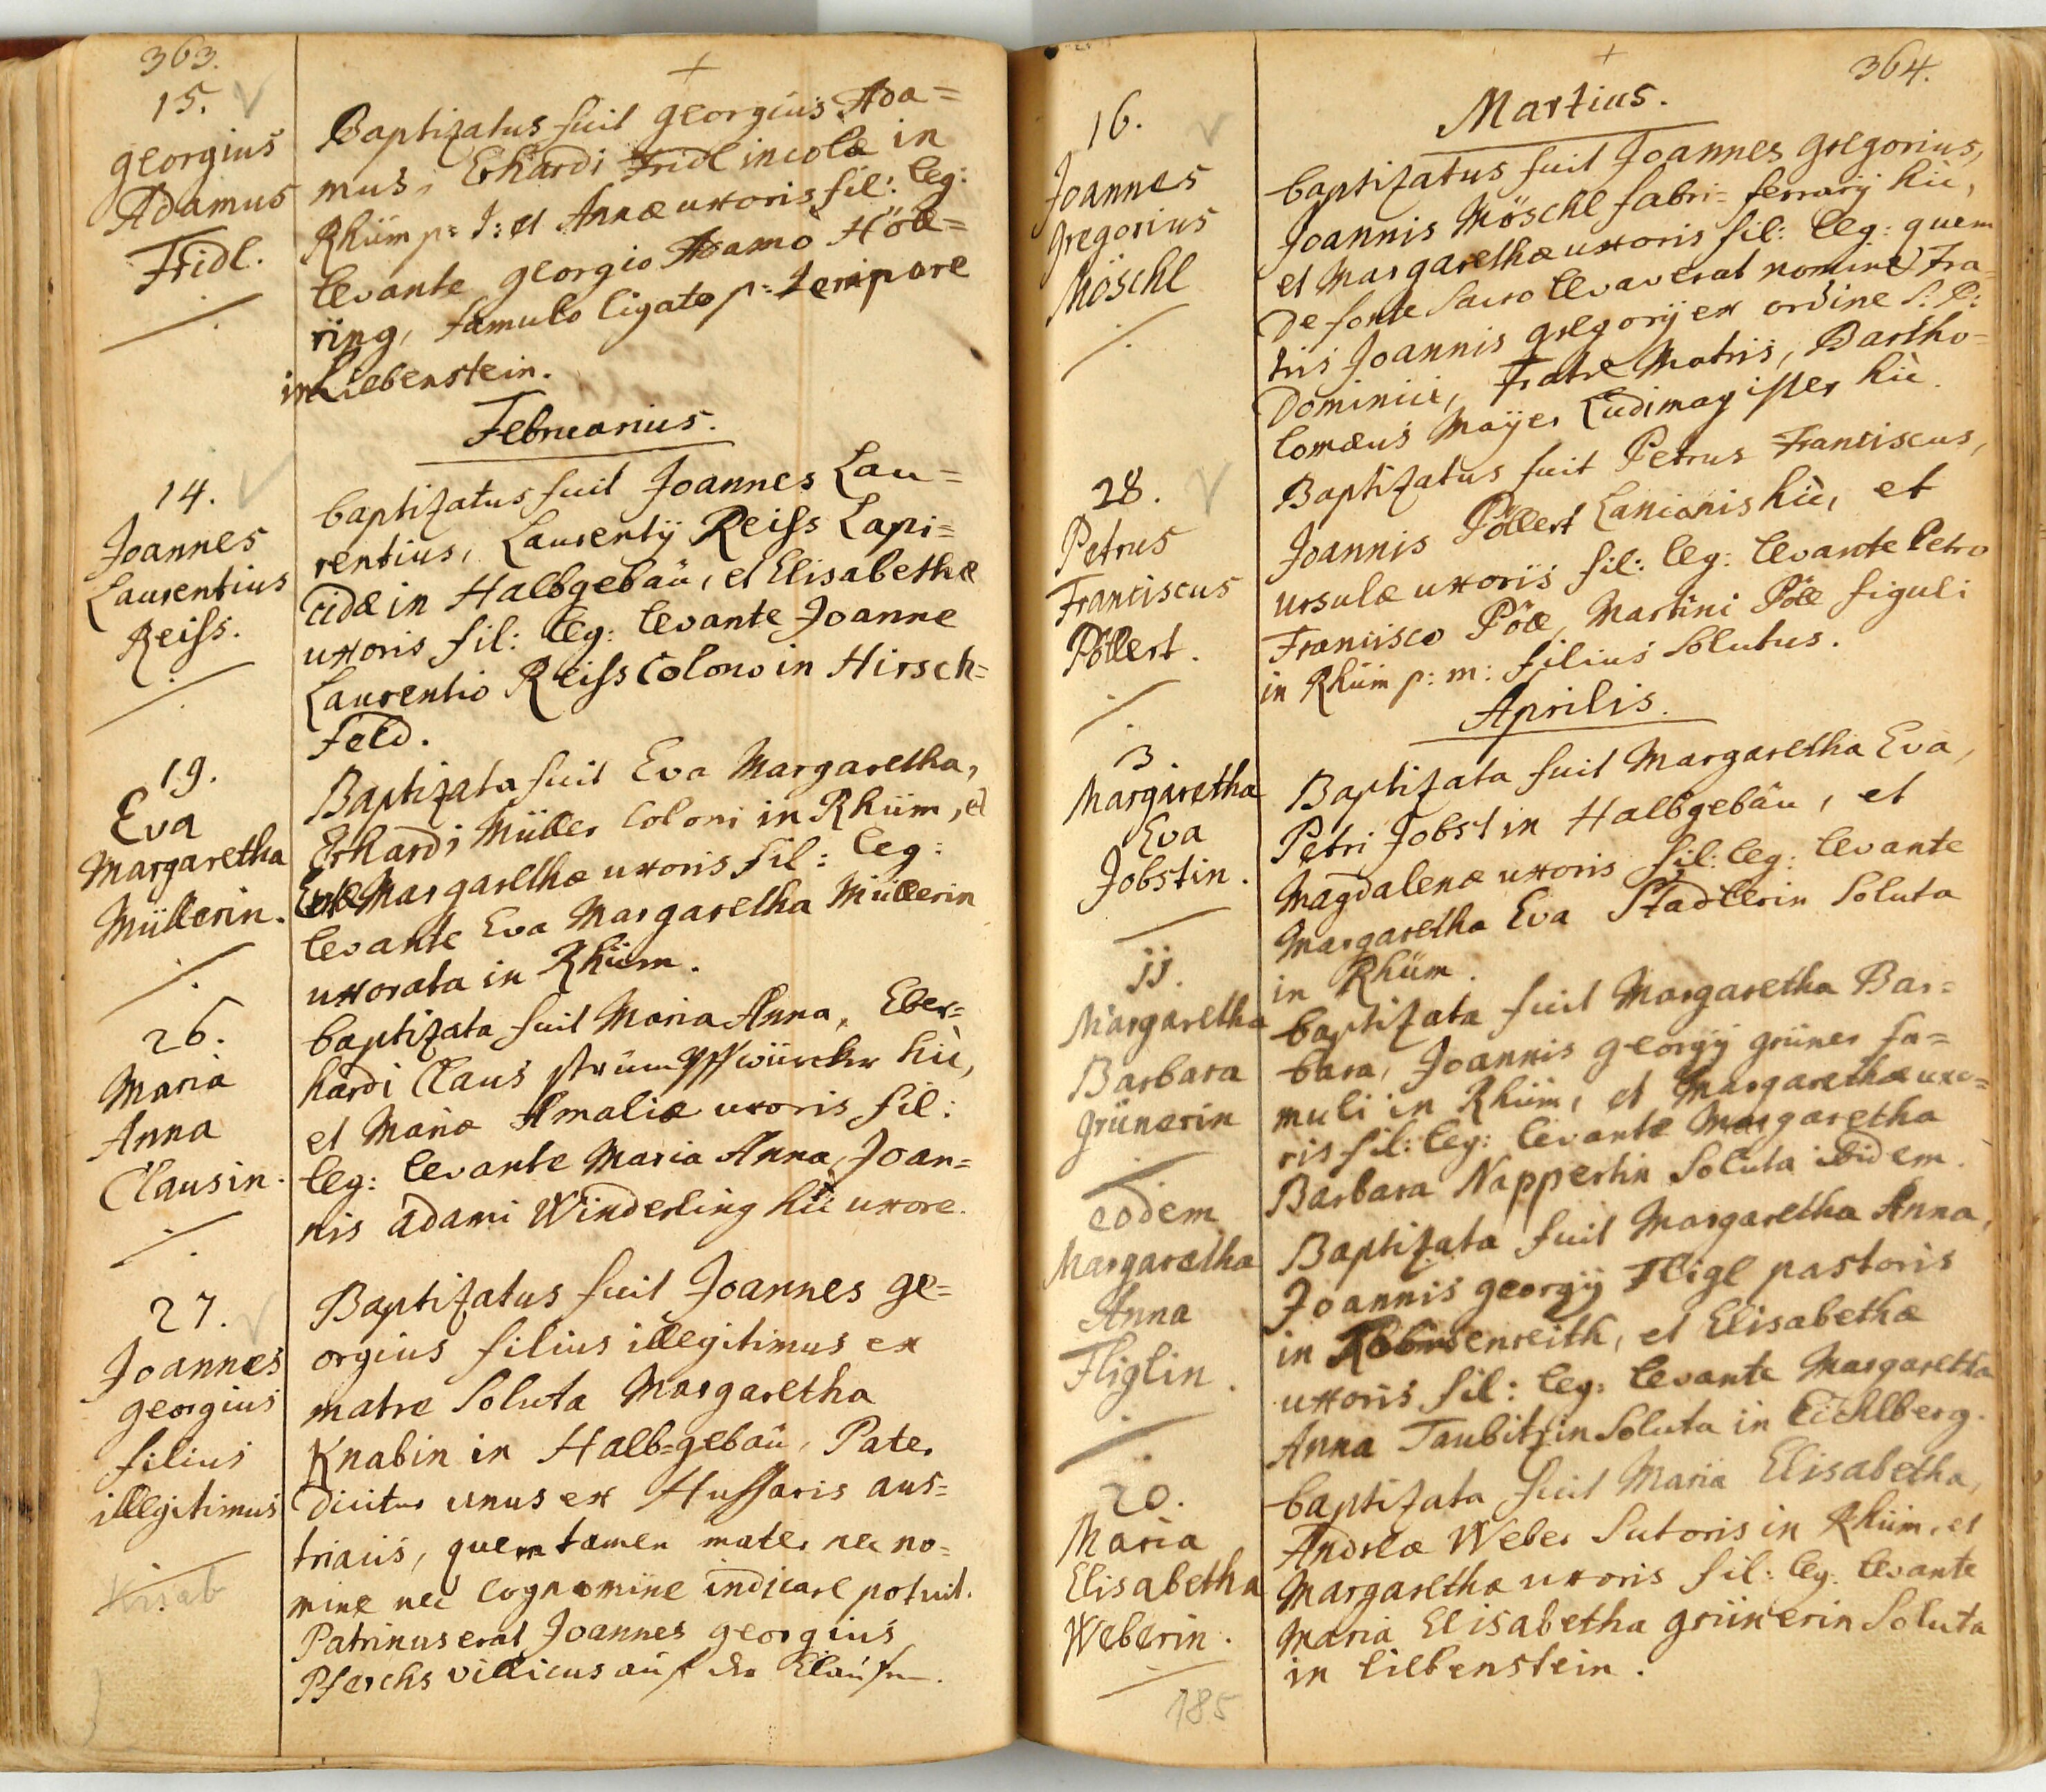 363.
15.
Georgius
Adamus
Fridl.
Baptizatus fuit Georgius Ada=
mus, Erhardi Fridl incolæ in
Rhüm p: J: et Annæ uxoris fil: leg:
levante Georgio Adamo Höll=
ring, famulo ligato p: tempore
in Liebenstein.
Februarius.
14.
Joannes
Laurentius
Reiss.
baptizatus fuit Joannes Lau=
rentius, Laurentÿ Reiss Lapi=
cidæ in Halbgebäu, et Elisabethæ
uxoris fil: leg: levante Joanne
Laurentio Reiss Colono in Hirsch=
feld.
19.
Eva
Margaretha
Müllerin.
Baptizata fuit Eva Margaretha,
Erhardi Müller Coloni in Rhüm, et
Evæ Margarethæ uxoris fil: leg:
levante Eva Margaretha Müllerin
uxorata in Rhüm.
26.
Maria
Anna
Clausin.
baptizata fuit Maria Anna, Eber=
hardi Claus strümpffwürcker hic,
et Mariæ Amaliæ uxoris fil:
leg: levante Maria Anna, Joan=
nis Adami Winderling hic uxore.
27.
Joannes
Georgius
filius
illegitimus
Knab
Baptizatus fuit Joannes Ge=
orgius filius illegitimus ex
matre Soluta Margaretha
Knabin in Halb=gebäu, Pater
dicitur unus ex Hussaris aus=
triacis, quem tamen mater nec no=
mine nec cognomine indicare potuit.
Patrinus erat Joannes Georgius
Pferchs villicus auf der Clausen.
364.
Martius.
16.
Joannes
Gregorius
Möschl
baptizatus fuit Joannes Gregorius,
Joannis Möschl fabri=ferrarÿ hic,
et Margarethæ uxoris fil: leg: quem
de fonte sacro levaverat nomine Fra=
tris Joannis Gregorÿ ex ordine S: P:
Dominici, Fratre Matris, Bartho=
lomæus Maÿer Ludimagister hic.
28.
Petrus
Franciscus
Pöllert.
Baptizatus fuit Petrus Franciscus,
Joannis Pöllert Lanionis hic, et
Ursulæ uxoris fil: leg: levante Petro
Francisco Pöll, Martini Pöll figuli
in Rhüm p: m: filius Solutus.
Aprilis.
3
Margaretha
Eva
Jobstin.
Baptizata fuit Margaretha Eva,
Petri Jobst in Halbgebäu, et
Magdalenæ uxoris fil: leg: levante
Margaretha Eva Stadlerin Soluta
in Rhüm.
11.
Margaretha
Barbara
Grünerin
baptizata fuit Margaretha Bar=
bara, Joannis Georgÿ Grüner fa=
muli in Rhüm, et Margarethæ uxo=
ris fil: leg: levante Margaretha
Barbara Nappertin Soluta ibidem.
eodem
Margaretha
Anna
Fliglin.
Baptizata fuit Margaretha Anna,
Joannis Georgÿ Fligl pastoris
in et Elisabethæ
uxoris fil: leg: levante Margaretha
Anna Taubitzin Soluta in Eichlberg.
20.
Maria
Elisabetha
Weberin.
baptizata fuit Maria Elisabetha,
Andreæ Weber Sutoris in Rhüm, et
Margaretha uxoris fil: leg: levante
Maria Elisabetha Grünerin Soluta
in liebenstein.
185